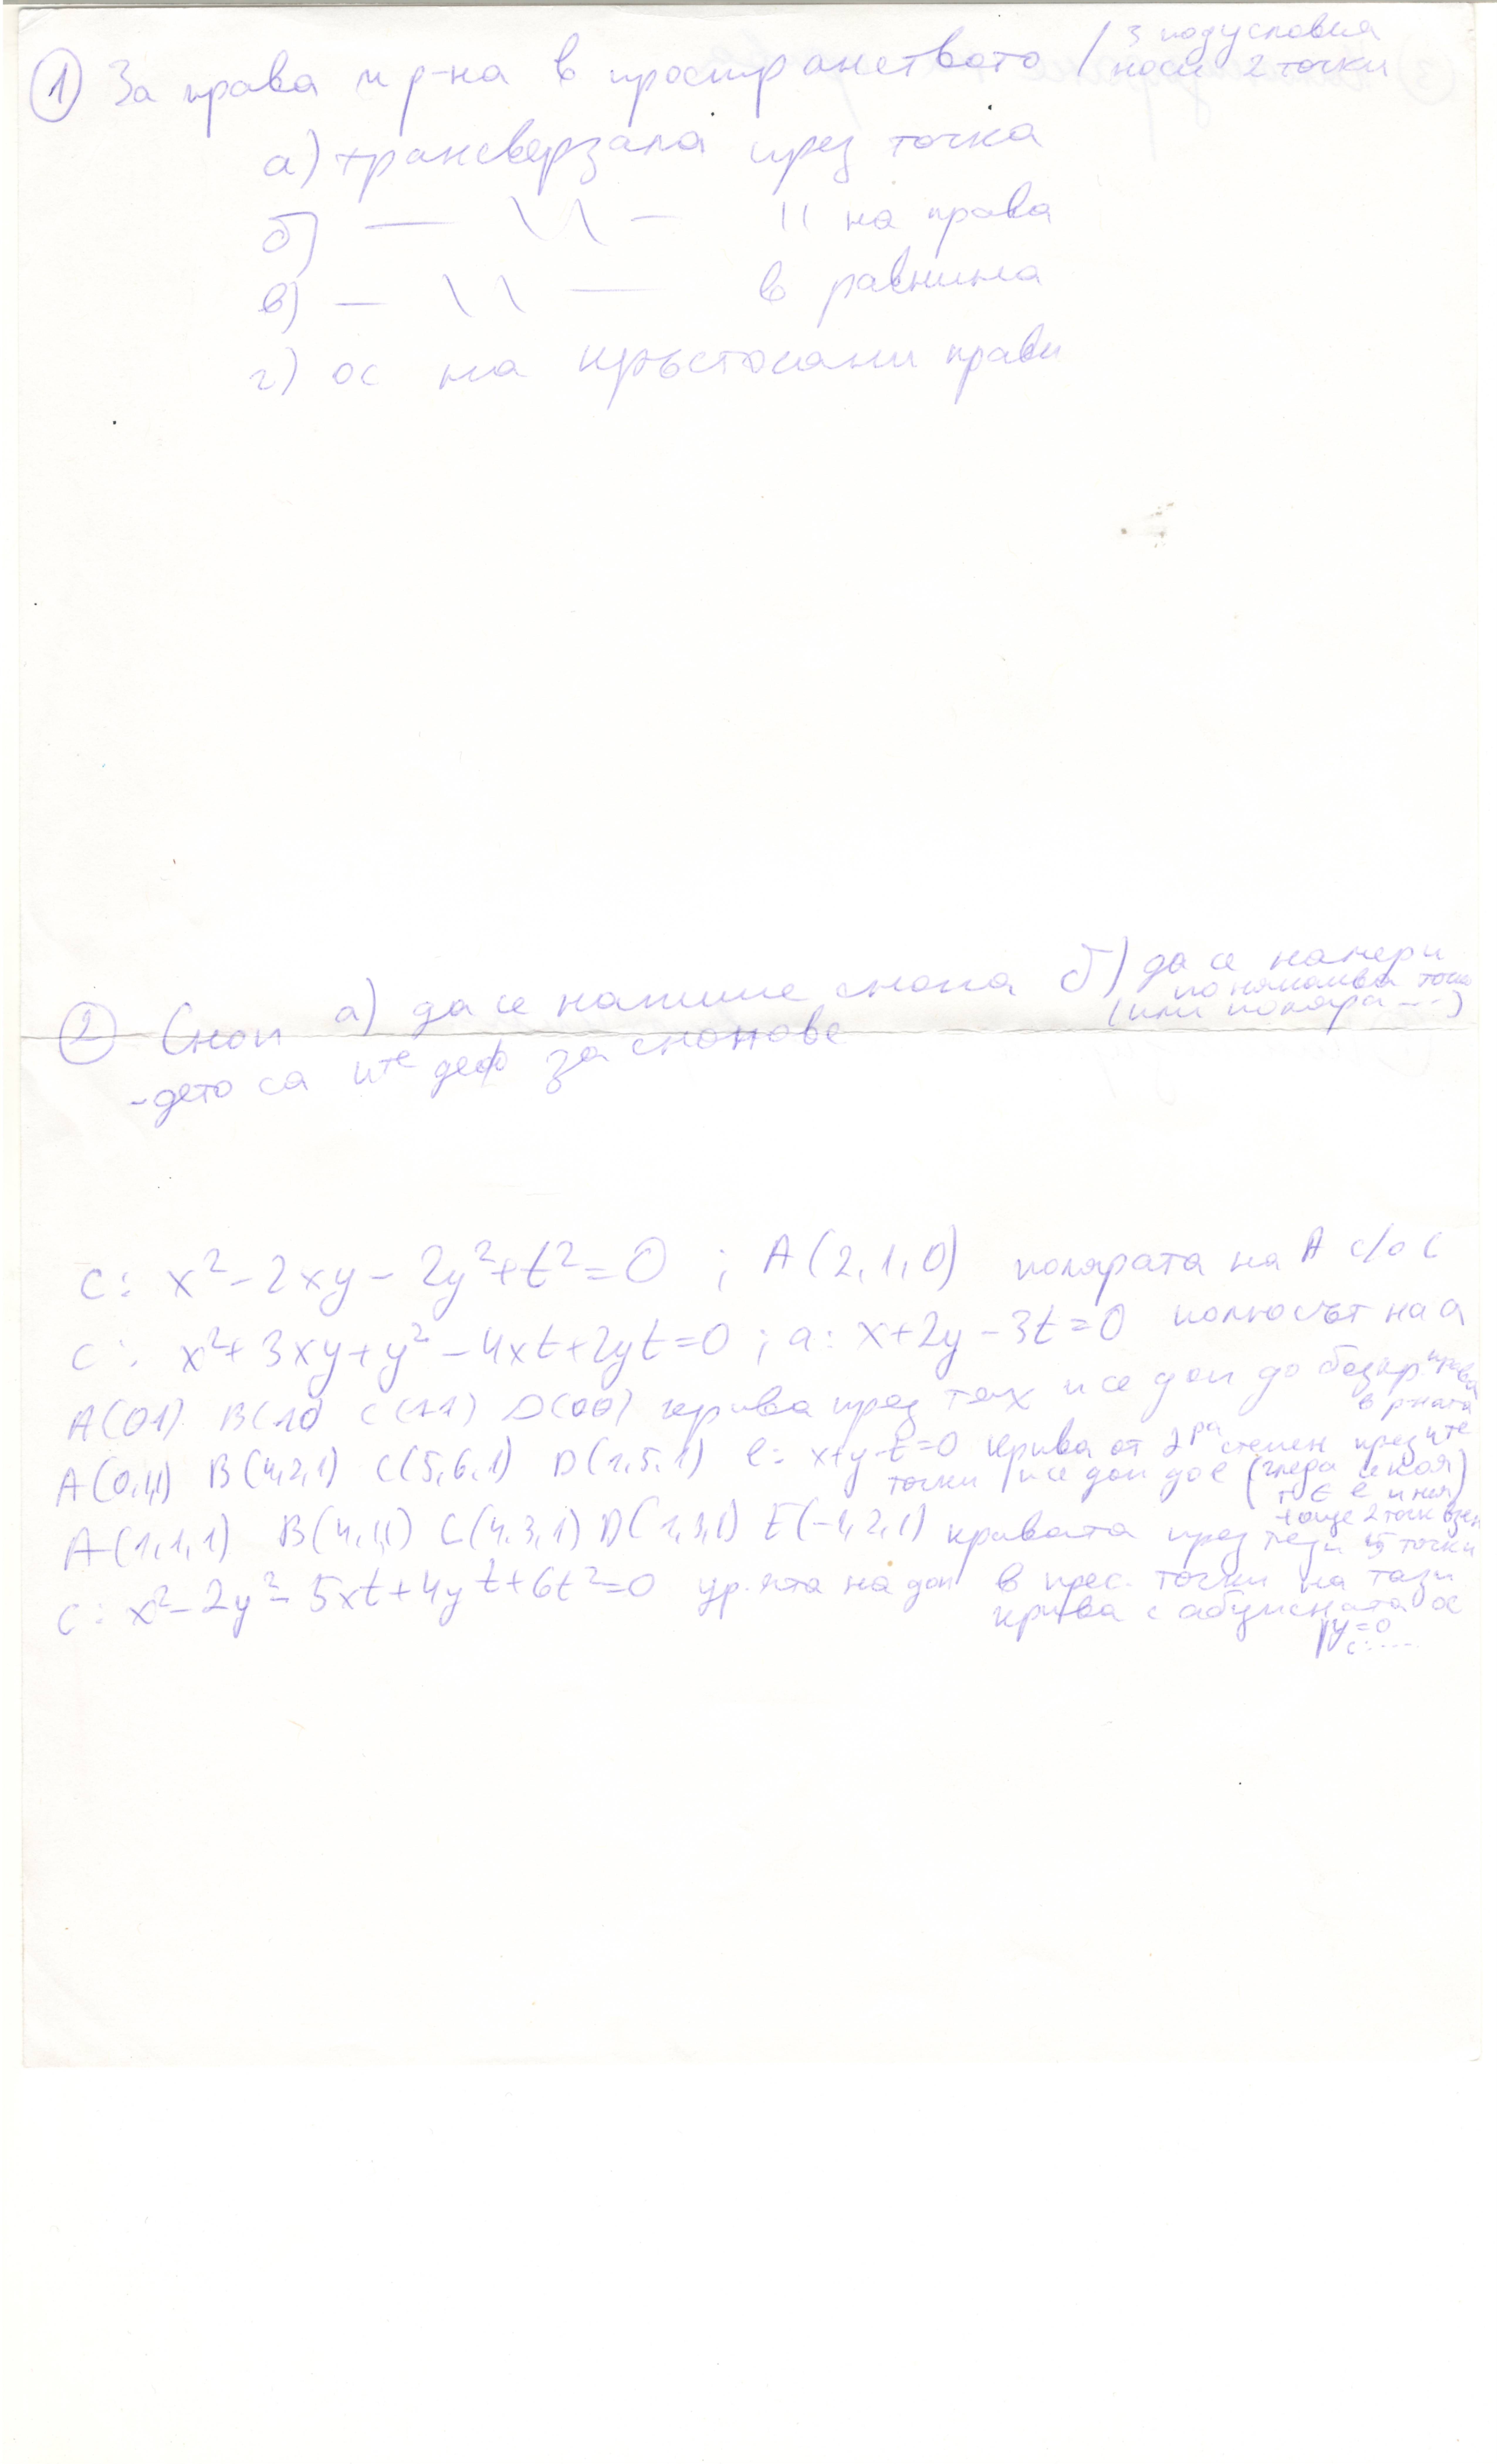 ① За права и р-на в пространството / 3 подусловия
носи 2 точки
а) трансверзала през точка
б) — \\ — || на права
в) — \\ — в равнина
г) ос на кръстосани прави
② Сноп а) да се напише снопа б) да се намери
(или поляра ---)
- дето са ите деф за снопове
c: x²-2xy-2y²+t²=0 ; A(2,1,0) полярата на A с/о C
c: x²+3xy+y²-4xt+2yt=0 ; a: x+2y-3t=0 полюсът на a
A(01) B(10 C(11) D(00) крива през тях и се доп до безкр права
в рната
A(0,1,1) B(4,2,1) C(5,6,1) D(1,5,1) l: x+y-t=0 крива от 2ра степен през ите
точки и се доп до l
A(1,1,1) B(4,1,1) C(4,3,1) D(1,3,1) E(-1,2,1) кривата през тези 5 точки
c: x²-2y²-5xt+4yt+6t²=0 ур.ята на доп в прес. точки на тази
крива с абцисната ос
y=0
c:----